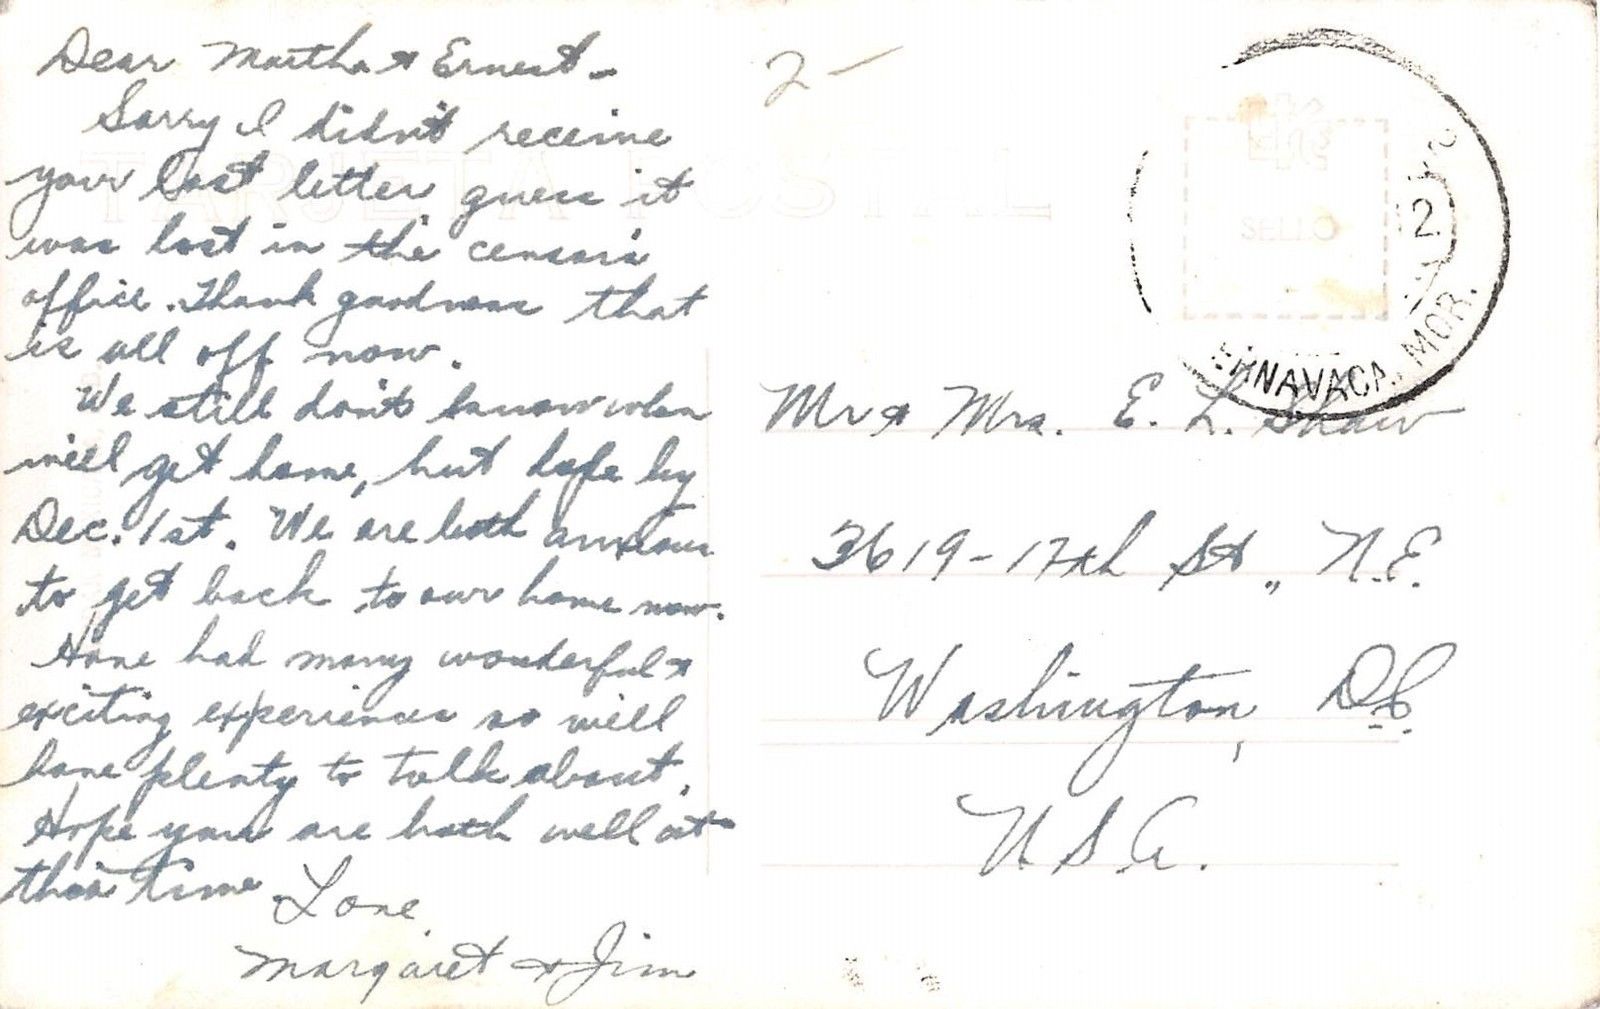 Dear Martha & Ernest -
Sorry I didn't receive
your last letter guess it
was lost in the censors
office. Thank goodness that
is all off now.
We still don't know when
will get home, but hope by
Dec. 1st. We are both anxious
to get back to our home now.
Have had many wonderful &
exciting experiences so will
have plenty to talk about.
Hope your are both well at
this time.
Love
Margaret & Jim
2 -
TARJETA POSTAL
EKC
SELLO
12
ERNAVACA, MOR.
Mr & Mrs. E. L. Shaw
3619 - 17th St., N.E.
Washington, D.C.
U S A.